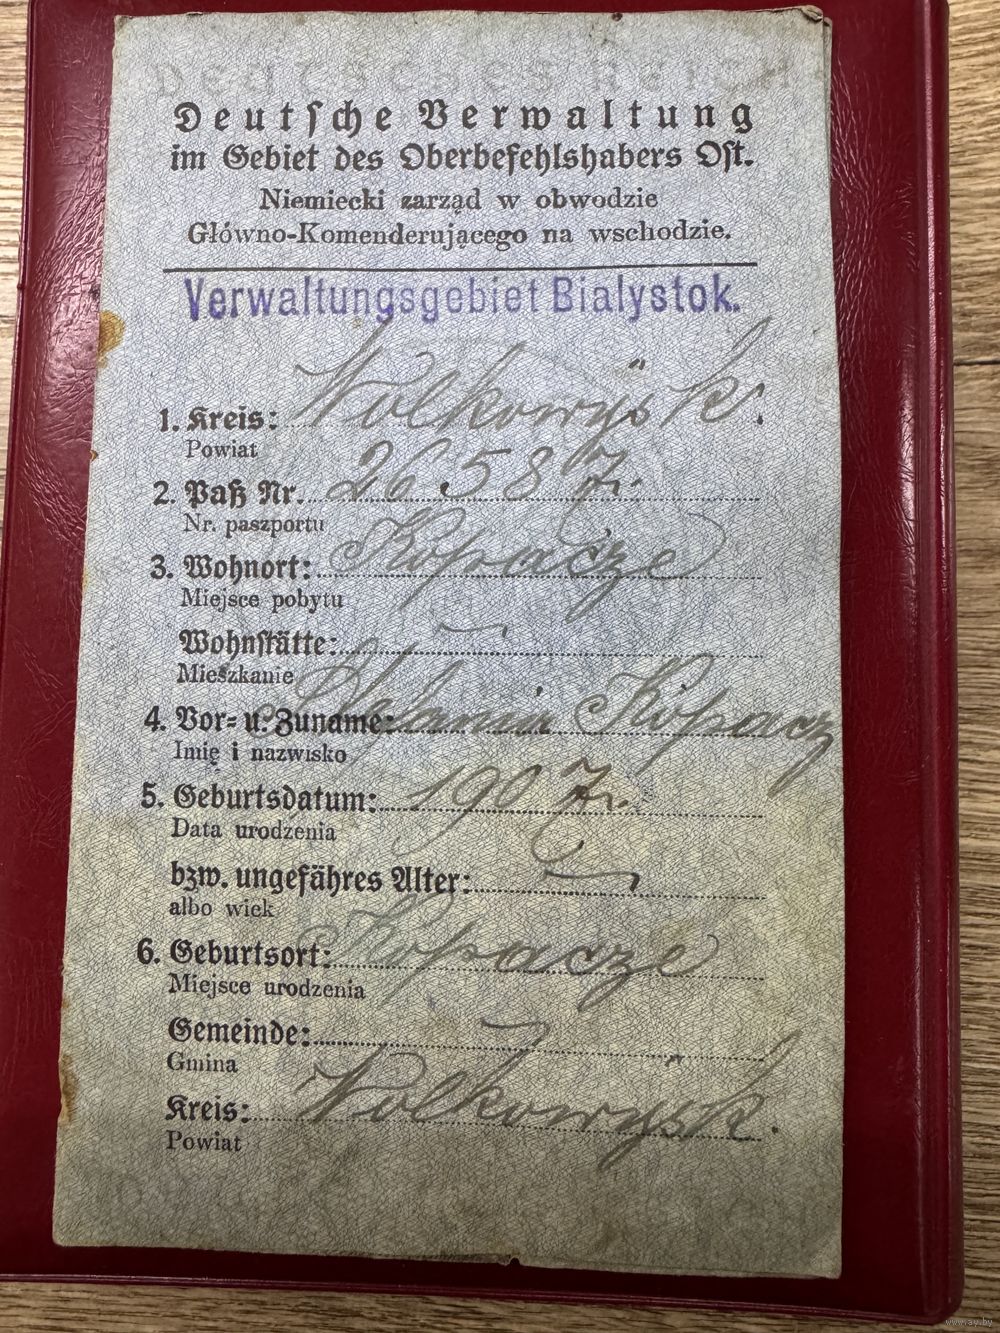 DEUTSCHES REICH
Deutsche Verwaltung
im Gebiet des Oberbefehlshabers Ost.
Niemiecki zarząd w obwodzie
Główno-Komenderującego na wschodzie.
Verwaltungsgebiet Bialystok.
1. Kreis: Wolkowysk.
Powiat
2. Paß Nr. 2658
Nr. paszportu
3. Wohnort: Kopacze
Miejsce pobytu
Wohnstätte:
Mieszkanie
4. Vor= u. Zuname: Stefania Kopacz
Imię i nazwisko
5. Geburtsdatum: 190
Data urodzenia
bzw. ungefähres Alter:
albo wiek
6. Geburtsort: Kopacze
Miejsce urodzenia
Gemeinde:
Gmina
Kreis: Wolkowysk.
Powiat
www.ay.by